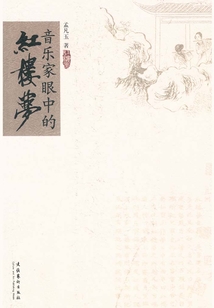 孟凡玉 著
音乐家眼中的
紅樓夢
文化藝術出版社